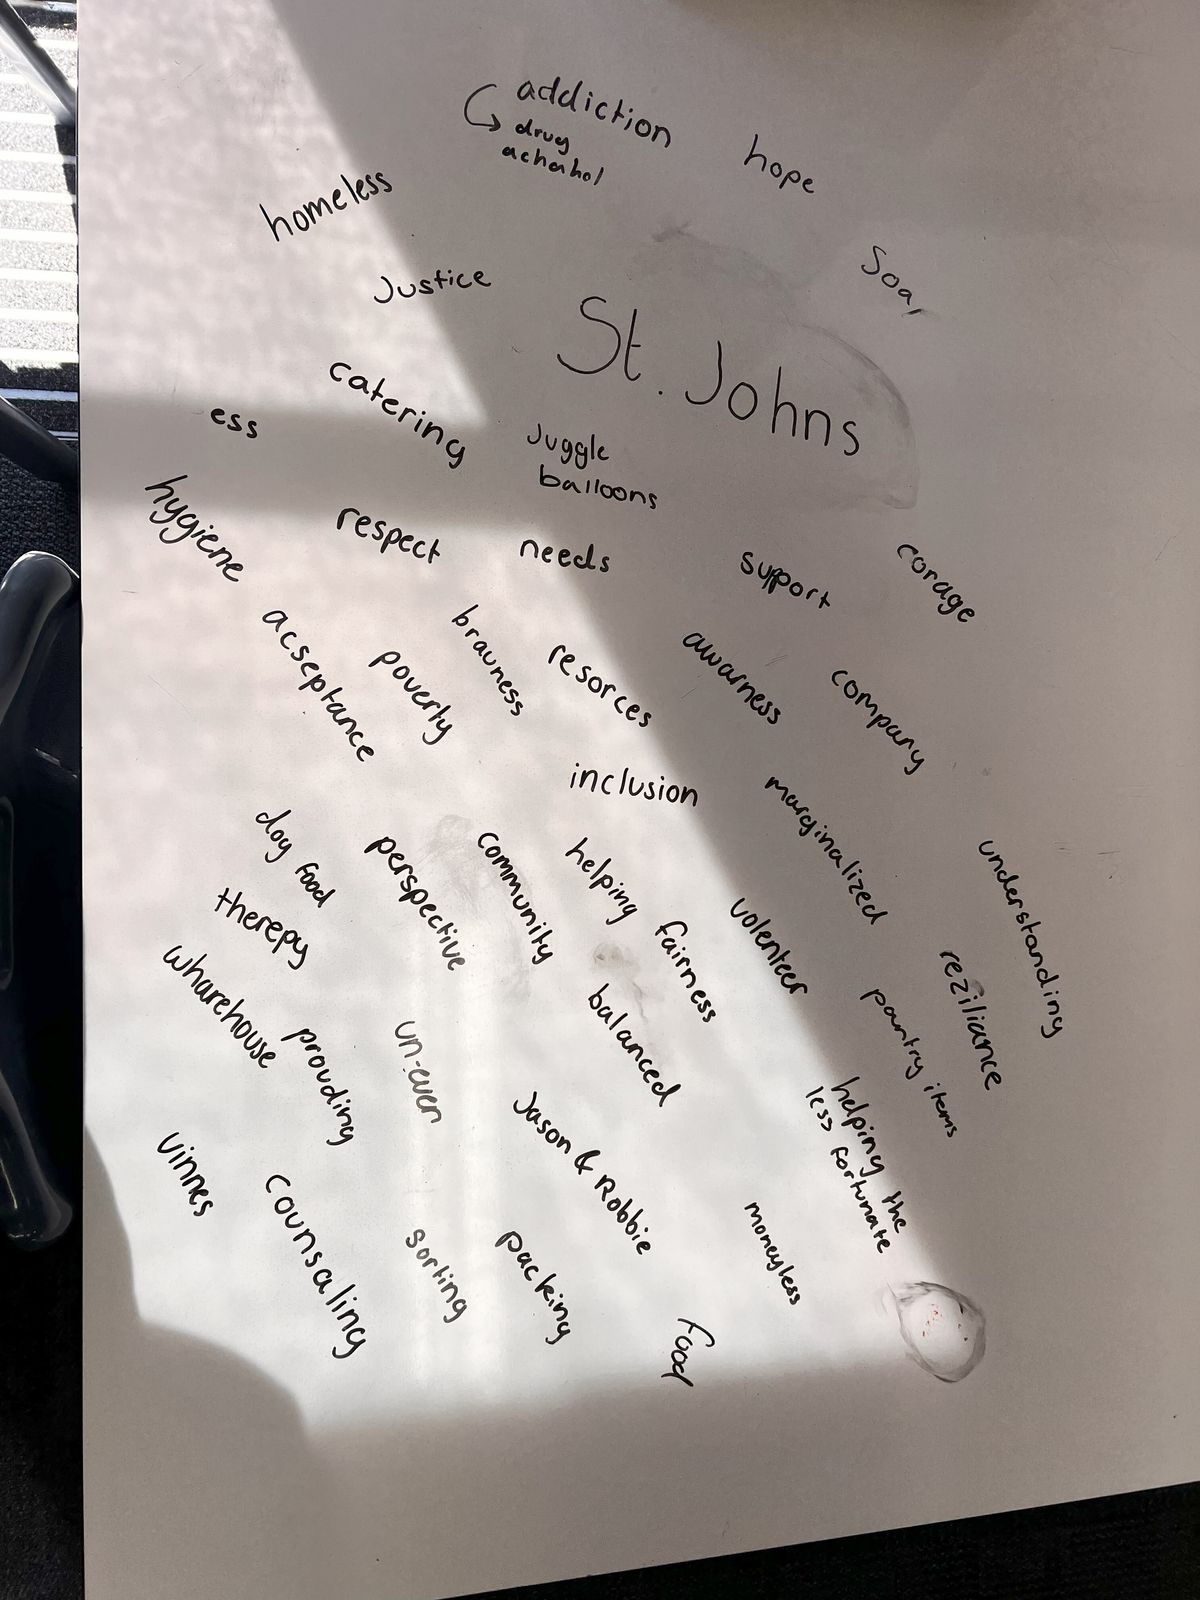 addiction
drug
achahol
hope
homeless
Soar
Justice
St. Johns
catering
ess
Juggle
balloons
hygiene
respect
needs
support
corage
acseptance
poverty
brauness
resorces
awarness
company
inclusion
marginalized
understanding
dog food
perspective
community
helping
fairness
volenteer
reziliance
therepy
wharehouse
prouding
un-even
balanced
pantry items
Jason & Robbie
helping the
less fortunate
vinnes
counsaling
sorting
packing
moneyless
food